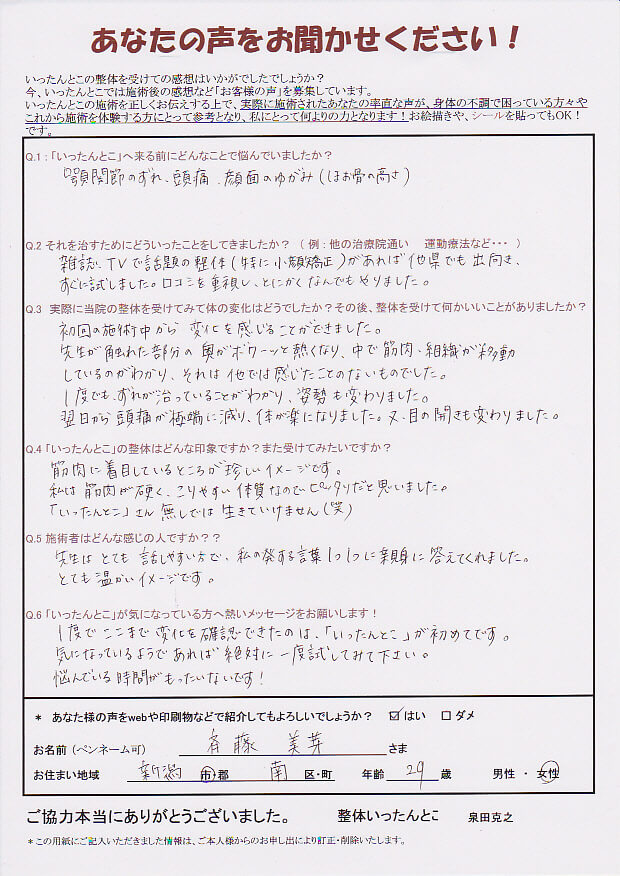 あなたの声をお聞かせください！
いったんとこの整体を受けての感想はいかがでしたでしょうか？
今、いったんとこでは施術後の感想など「お客様の声」を募集しています。
いったんとこの施術を正しくお伝えする上で、実際に施術されたあなたの率直な声が、身体の不調で困っている方々や
これから施術を体験する方にとって参考となり、私にとって何よりの力となります！お絵描きや、シールを貼ってもOK！
です。
Q.1：「いったんとこ」へ来る前にどんなことで悩んでいましたか？
顎関節のずれ、頭痛、顔面のゆがみ（ほお骨の高さ）
Q.2 それを治すためにどういったことをしてきましたか？（例：他の治療院通い　運動療法など・・・）
雑誌、TVで話題の整体（特に小顔矯正）があれば他県でも出向き、
すぐに試しました。口コミを重視し、とにかくなんでもやりました。
Q.3 実際に当院の整体を受けてみて体の変化はどうでしたか？その後、整体を受けて何かいいことがありましたか？
初回の施術中から変化を感じることができました。
先生が触れた部分の奥がボワーンと熱くなり、中で筋肉・組織が移動
しているのがわかり、それは他では感じたことのないものでした。
1度でも、ずれが治っていることがわかり、姿勢も変わりました。
翌日から頭痛が極端に減り、体が楽になりました。又、目の開きも変わりました。
Q.4「いったんとこ」の整体はどんな印象ですか？また受けてみたいですか？
筋肉に着目しているところが珍しいイメージです。
私は筋肉が硬く、こりやすい体質なのでピッタリだと思いました。
「いったんとこ」さん無しでは生きていけません（笑）
Q.5 施術者はどんな感じの人ですか？？
先生はとても話しやすい方で、私の発する言葉1つ1つに親身に答えてくれました。
とても温かいイメージです。
Q.6「いったんとこ」が気になっている方へ熱いメッセージをお願いします！
1度でここまで変化を確認できたのは、「いったんとこ」が初めてです。
気になっているようであれば絶対に一度試してみて下さい。
悩んでいる時間がもったいないです！
＊ あなた様の声をwebや印刷物などで紹介してもよろしいでしょうか？ ☑はい □ダメ
お名前（ペンネーム可） 斉藤 美芽 さま
お住まい地域 新潟 市・郡 南 区・町 年齢 29 歳 男性・女性
ご協力本当にありがとうございました。 整体いったんとこ 泉田克之
＊この用紙にご記入いただきました情報は、ご本人様からのお申し出により訂正・削除いたします。